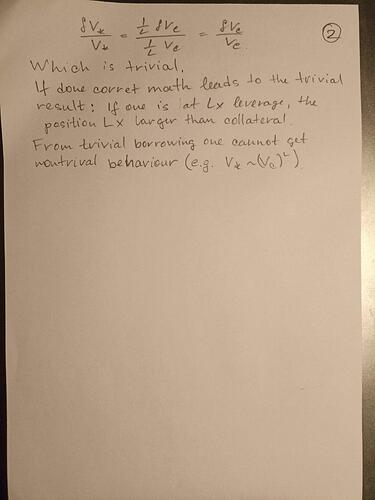 δV* / V* = (1/L δVe) / (1/L Ve) = δVe / Ve. ②
Which is trivial.
If done corret math leads to the trivial
result: If one is at Lx leverage, the
position Lx larger than collateral.
From trivial borrowing one cannot get
nontrival behaviour (e.g. V* ~ (Ve)^L).